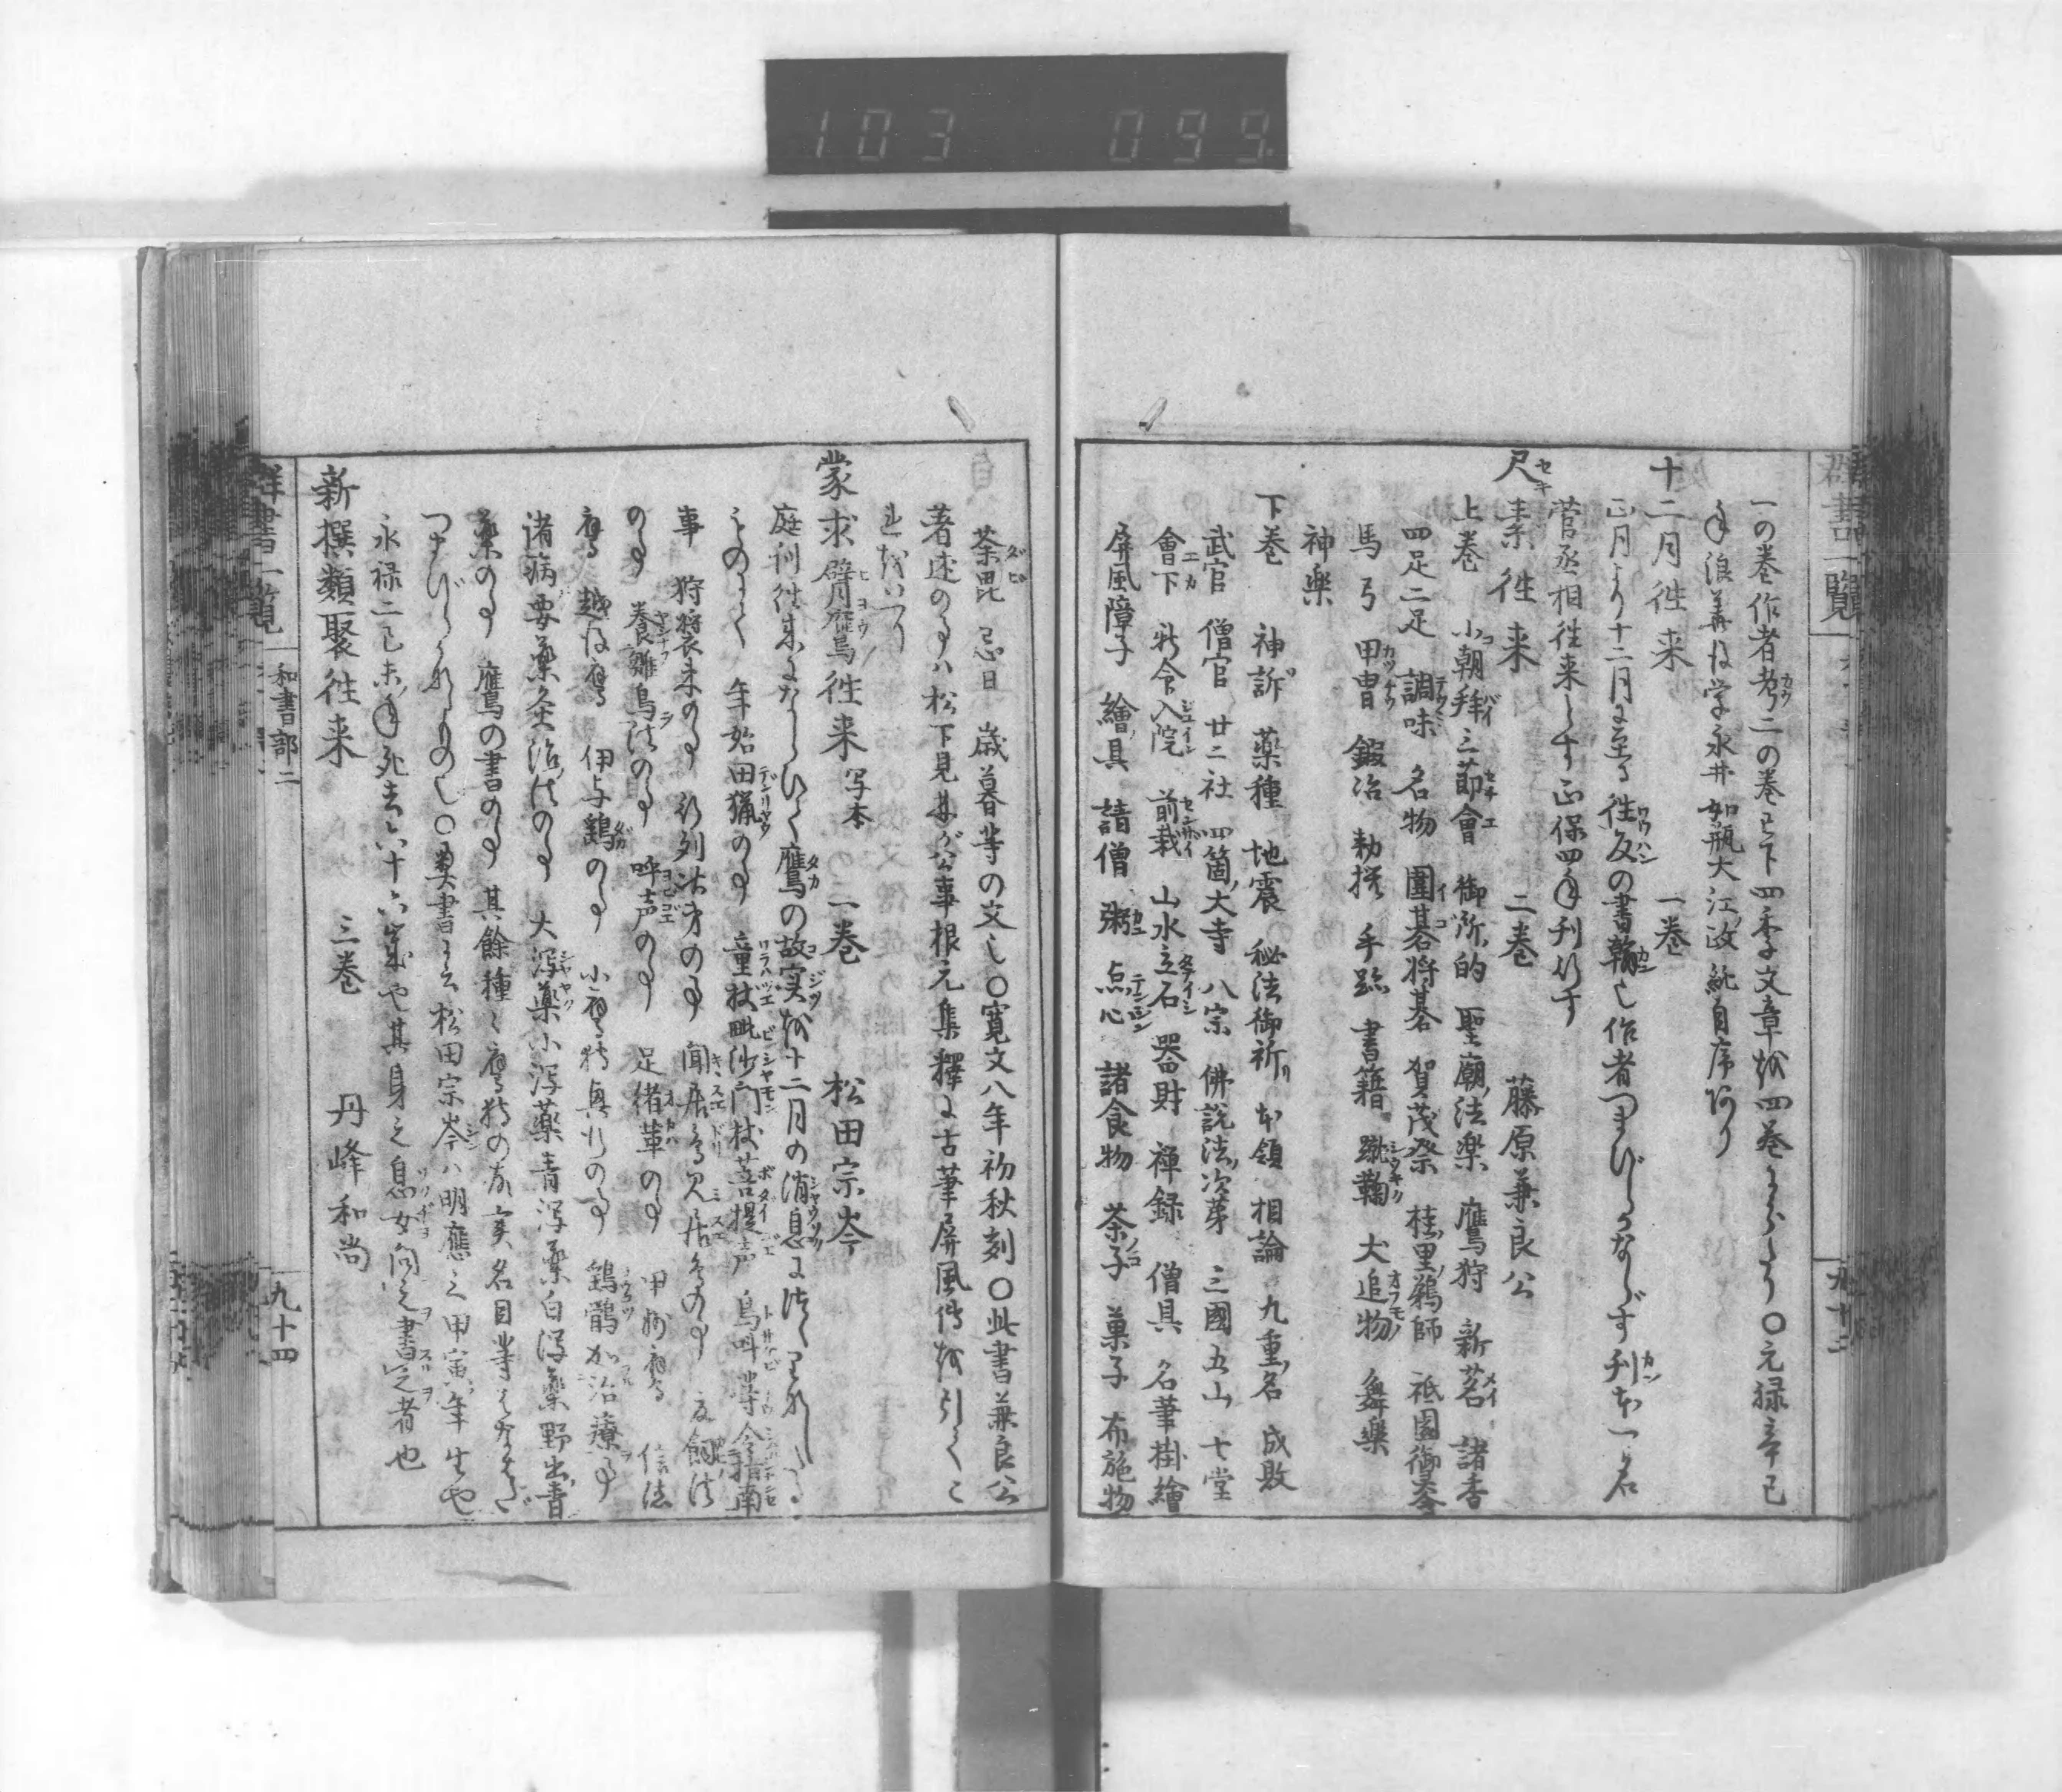 103 099
群書一覽
一の巻作者考二の巻已下四季文章を四巻にわかてり〇元禄辛巳
年浪華後学永井如瓶大江政紀自序あり
十二月往来 一巻
正月より十二月に至る往返の書翰也作者つまびらかならず刊本一名
菅丞相往来とす正保四年刊行す
尺素往来 二巻 藤原兼良公
上巻 小朝拜 三節會 御所的 聖廟法楽 鷹狩 新茗 諸香
四足二足 調味 名物 圍碁将碁 賀茂祭 桂里鵜師 祗園御霊會
馬 弓 甲冑 鍜冶 勅撰 手跡 書籍 蹴鞠 犬追物 舞樂
神樂
下巻 神訴 薬種 地震 秘法御祈 本領 相論 九重名 成敗
武官 僧官 廿二社 四箇大寺 八宗 佛説法次第 三國五山 七堂
會下 新命入院 前栽 山水立石 器財 禅録 僧具 名筆掛繪
屏風障子 繪具 請僧 粥 点心 諸食物 茶子 菓子 布施物
荼毘 忌日 歳暮等の文也〇寛文八年初秋刻〇此書兼良公
著述の事ハ松下見林が公事根元集釋に古筆屏風傳を引てこ
れをいへり
蒙求臂鷹往来 写本 一巻 松田宗岑
庭訓往来にならひて鷹の故実を十二月の消息につくれり
そのすべて 年始田猟の事 童杖毗沙門杖菩提声 鳥叫等令指南
事 狩将衣来の事 行列次第の事 聞居鳥見居鳥の事 友飼法
の事 養雛鳥法の事 呼声の事 足緒革の事 甲州鷹 信法
鷹 越後鷹 伊与鷂の事 小鷹狩興行の事 鵼鶻加治療事
諸病要薬灸治法の事 大瀉薬小瀉薬青瀉薬白瀉薬野出青
薬の事 鷹の書の事 其餘種々鷹狩の故実名目等
つまびらかなるもの也〇奥書に云松田宗岑ハ明應三甲寅年生也
永禄二己未年死去六十六歳也其身之息女向之書写之者也
新撰類聚往来 三巻 丹峰和尚
群書一覽 和書部二 九十四